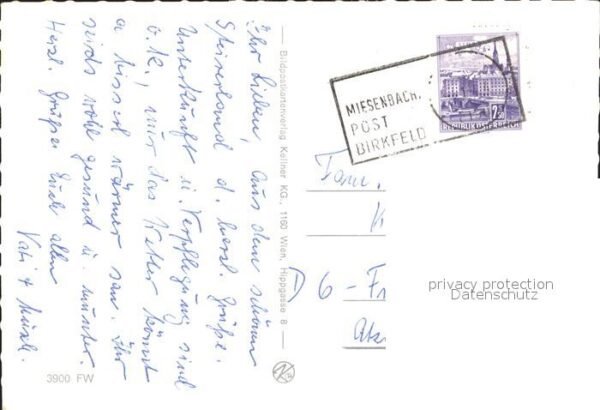 Ihr Lieben, aus dem schönen
Steirerland d. herzl. Grüße.
Unterkunft u. Verpflegung sind
o.k., nur das Wetter könnt
a bissel wärmer san. Ihr
seids wohl gesund u. munter.
Herzl. Grüße Euch allen
Vati &
3900 FW
Bildpostkartenverlag Kellner KG., 1160 Wien, Hippgasse 8
MIESENBACH,
POST
BIRKFELD
REPUBLIK ÖSTERREICH
Fam.
K
D 6 - Fr
privacy protection
Datenschutz